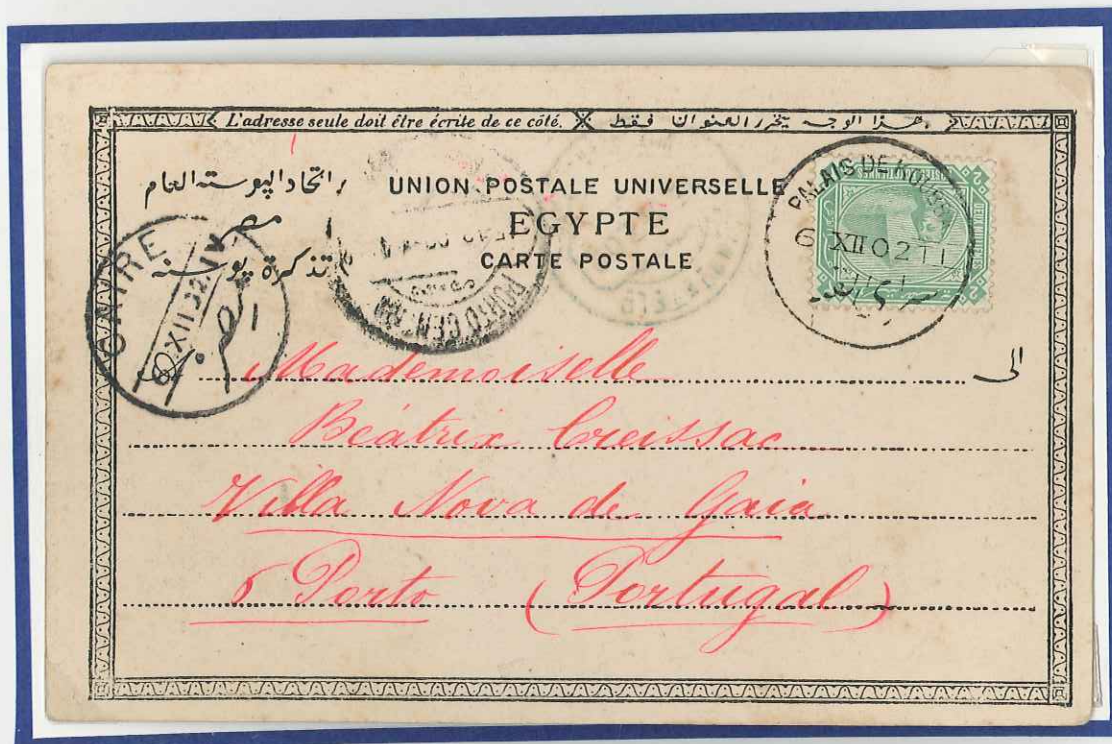 L'adresse seule doit être écrite de ce côté.
هذا الوجه يحرر العنوان فقط
اتحاد البوسته العام
مصر
تذكرة بوسته
UNION POSTALE UNIVERSELLE
EGYPTE
CARTE POSTALE
PALAIS DE KOUBBEH
6 XII 02 T I
سراي القبة
CAIRE
PORTO CENTRAL
الى
Mademoiselle
Béatrix Creissac
Villa Nova de Gaia
Porto (Portugal)